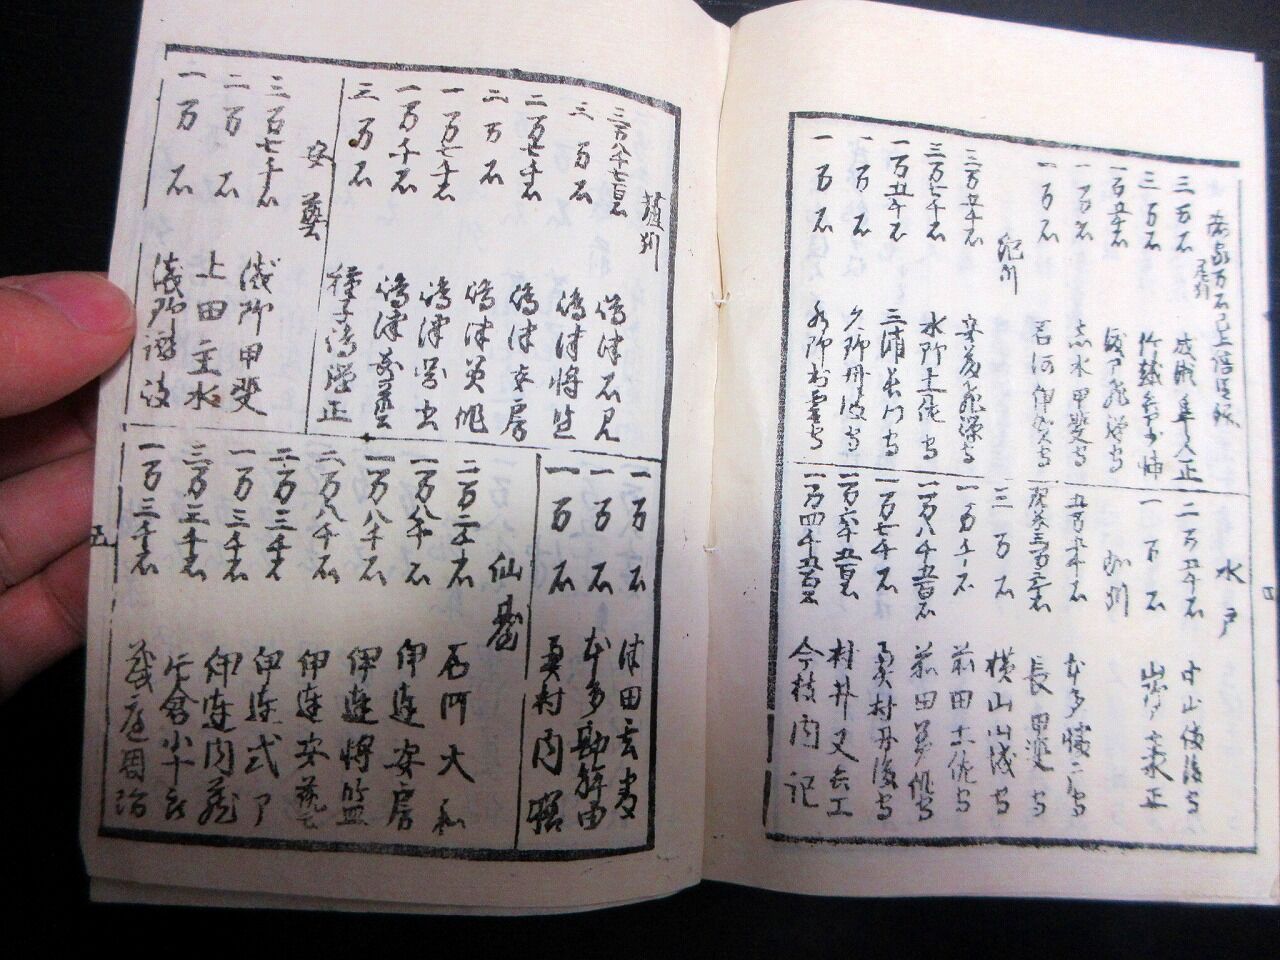 尾州
三万石 成瀬隼人正
三万石 竹越兵部少輔
一万五千石
一万石 志水甲斐守
一万石 石河伊賀守
紀州
三万五千石 安藤飛騨守
三万七千石 水野土佐守
一万五千石 三浦長門守
一万石 久野丹波守
一万石
水戸
二万五千石 中山備後守
一万石
加州
五万五千石 本多
三万三千石 長甲斐守
三万石 横山山城守
一万千石 前田土佐守
一万八千五百石 前田美作守
一万七千石 奥村丹後守
一万六千五百石 村井又兵エ
一万四千五百石 今枝内記
薩州
三万八千七百石 嶋津石見
三万石 嶋津将監
二万七千石 嶋津安房
二万石 嶋津美作
一万七千石 嶋津
一万千石 嶋津安藝
三万石 種子嶋弾正
安藝
三万七千石 浅野甲斐
二万石 上田主水
一万石 浅野
一万石 津田玄蕃
一万石 本多勘解由
一万石 奥村内膳
仙臺
二万二千石 石川大和
一万八千石 伊達安房
一万八千石 伊達将監
二万八千石 伊達安藝
二万三千石 伊達式部
一万三千石 伊達内蔵
三万三千石 片倉小十郎
一万三千石 茂庭周防
四
五